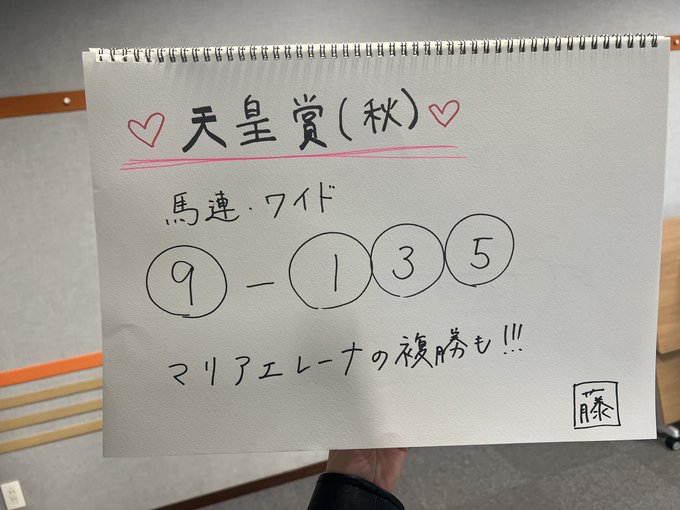 ♡天皇賞(秋)♡
馬連・ワイド
⑨-①③⑤
マリアエレーナの複勝も!!!
藤